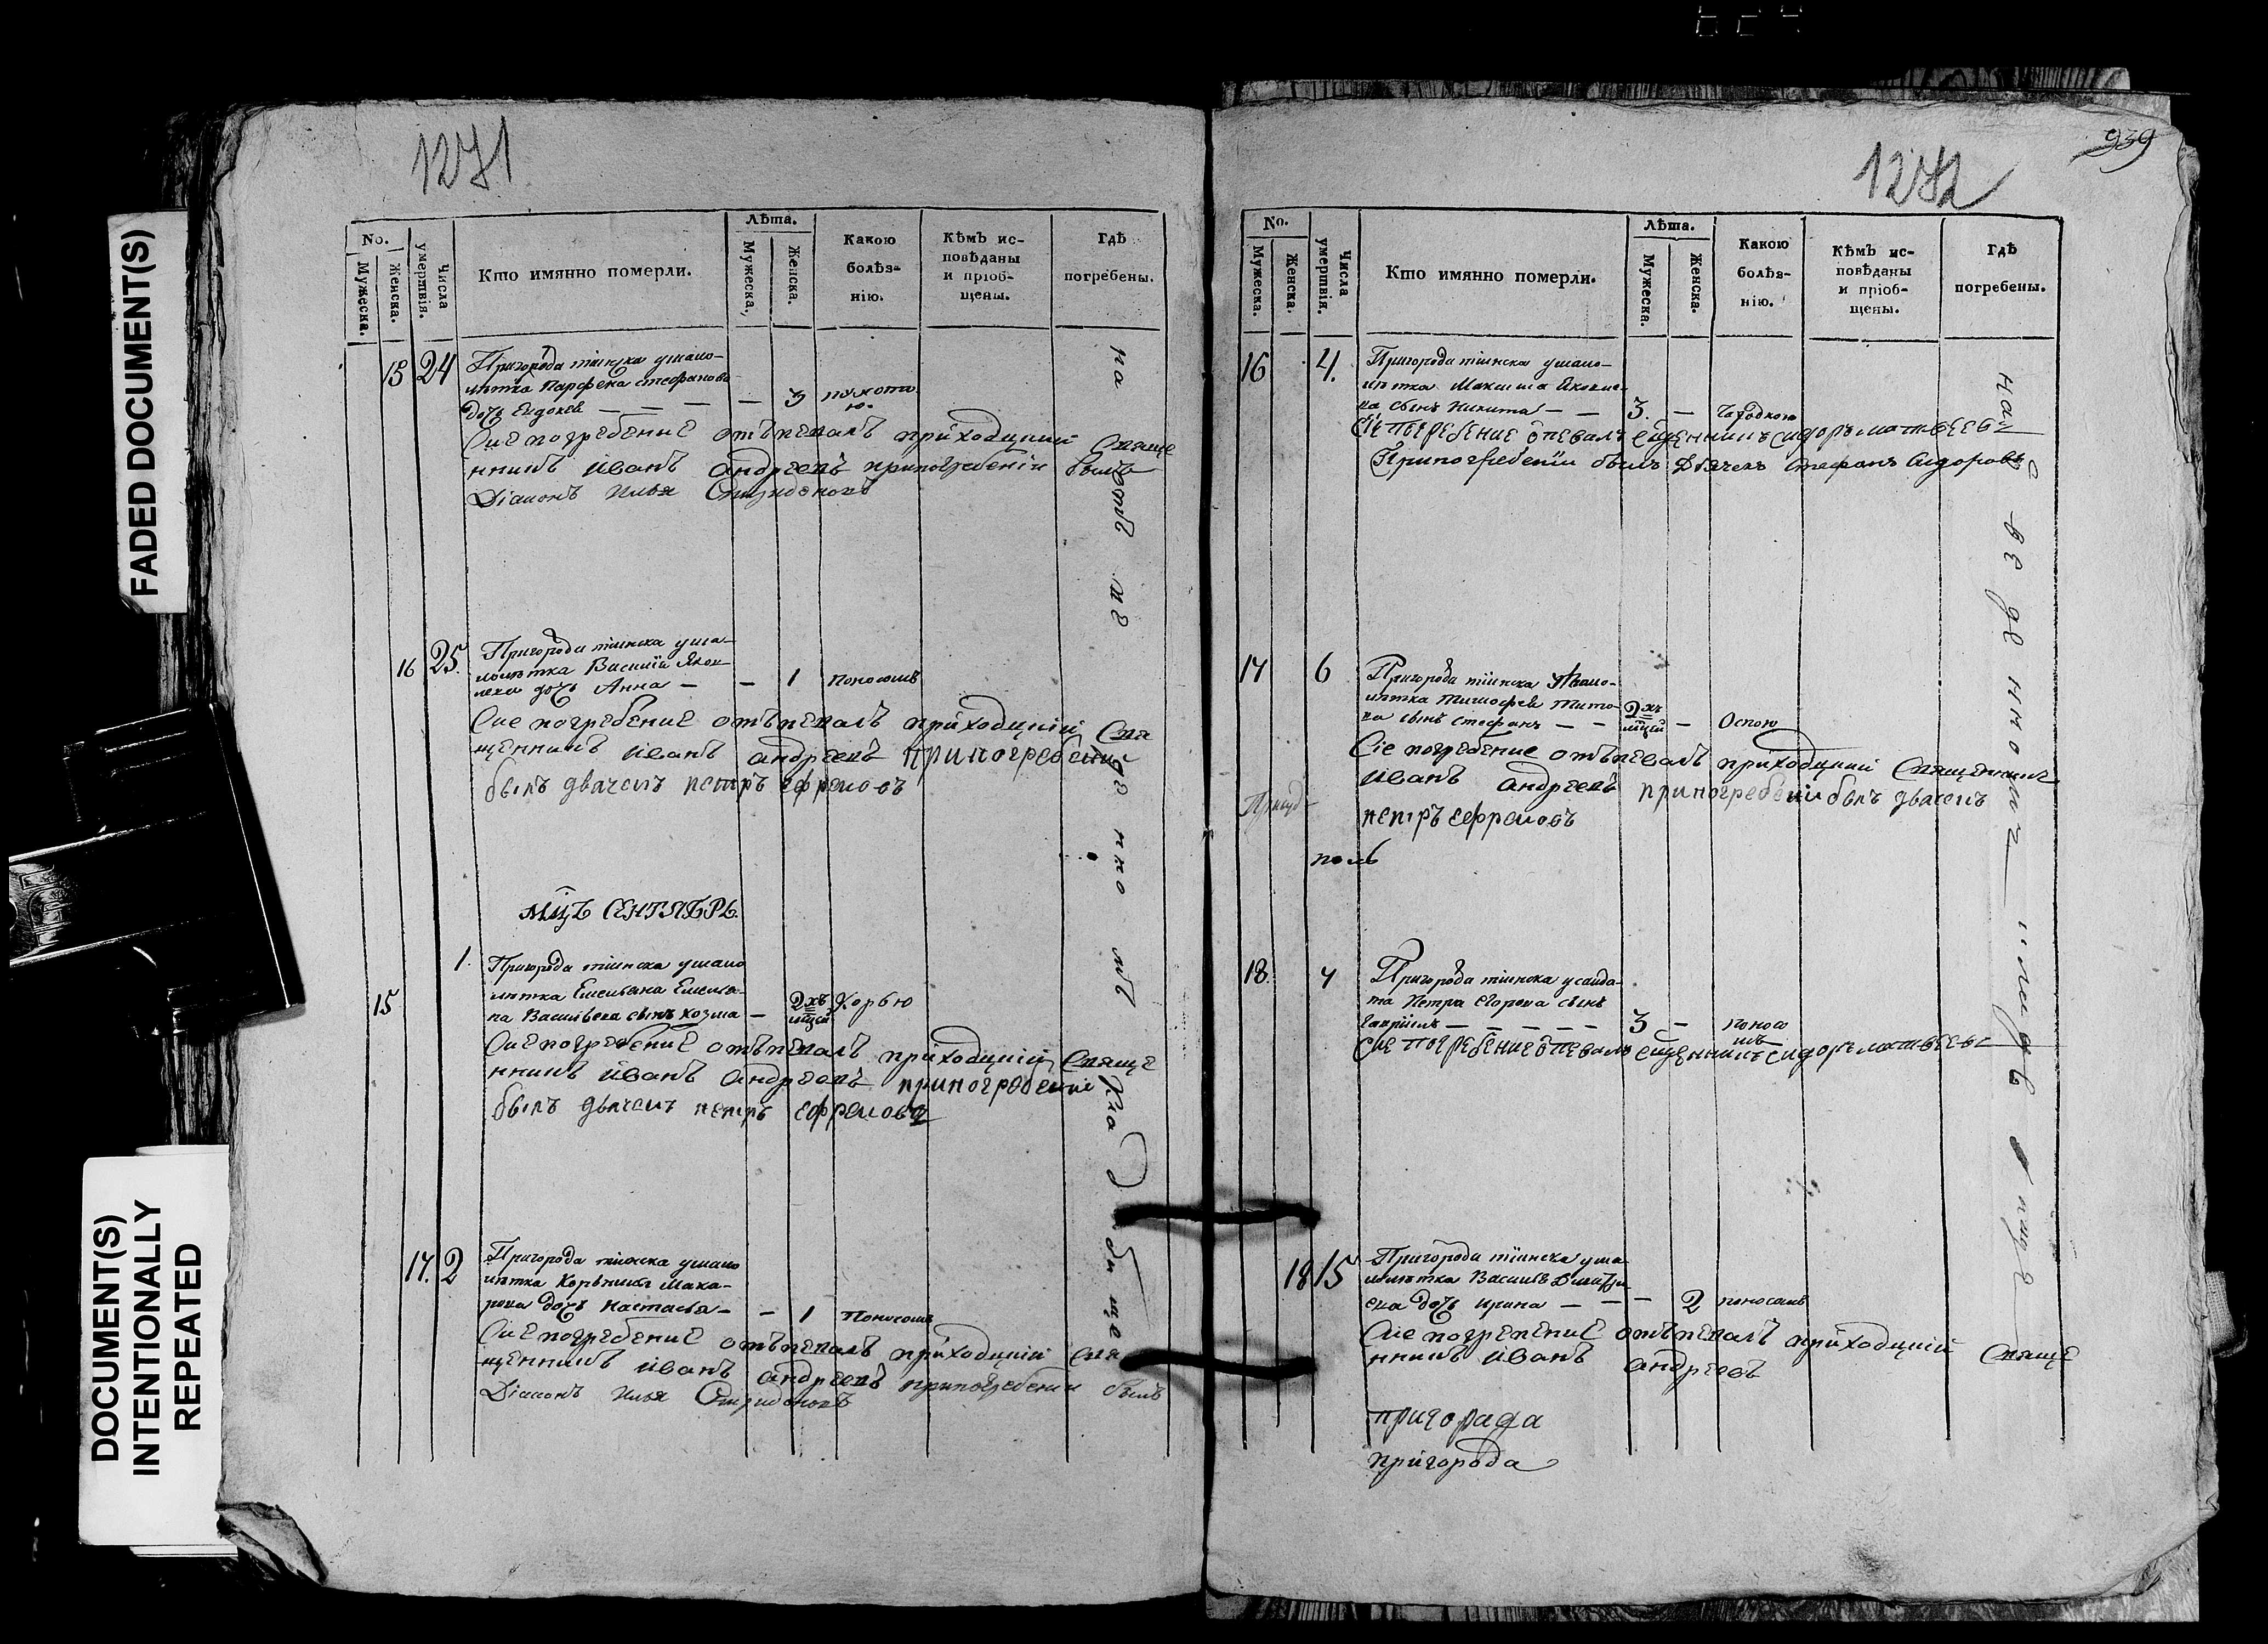 FADED DOCUMENT(S)
DOCUMENT(S)
INTENTIONALLY
REPEATED
1271
No.
Мужеска.
Женска.
Числа
умертвія.
Кто имянно померли.
Лѣта.
Мужеска.
Женска.
Какою
болѣз-
нію.
Кѣмъ ис-
повѣданы
и пріоб-
щены.
Гдѣ
погребены.
15 24 Пригорода тіинска умало-
лѣтка Парфена стефанова
дочь Евдокея — — — — 3 сухото
ю.
Сие погребение отъпевалъ приходцкий Свяще
нникъ иванъ андреевъ припогребении былъ
Діаконъ Илья Спиридоновъ
16 25. Пригорода тіинска ума-
лолѣтка Василія Яков-
лева дочь Анна — — 1 поносомъ
Сие погребение отъпевалъ приходцкий Свя
щенникъ иванъ андреевъ припогребении
былъ дьячекъ петръ ефремовъ
мцъ СЕНТЯБРЬ.
1. Пригорода тіинска умало
лѣтка Емельяна Емелья-
15 на Васильева сынъ козма — 2хъ мцей Корью
Сие погребение отъпевалъ приходцкий Свяще
нникъ иванъ андреевъ припогребении
былъ дьячекъ петръ ефремовъ
17. 2 Пригорода тіинска умало
лѣтка Корнила мака-
рова дочь настасья — — 1 Поносомъ
Сие погребение отъпевалъ приходцкий Свя
щенникъ иванъ андреевъ припогребении былъ
Діаконъ Илья Спиридоновъ
на
1272
939
No.
Мужеска.
Женска.
Числа
умертвія.
Кто имянно померли.
Лѣта.
Мужеска.
Женска.
Какою
болѣз-
нію.
Кѣмъ ис-
повѣданы
и пріоб-
щены.
Гдѣ
погребены.
16 4. Пригорода тіинска умало-
лѣтка Максима Яковле-
ва сынъ Никита — — 3. —
Сіе погребение отпевалъ сщенникъ сидоръ матвеевъ
Припогребении былъ Дьячекъ Стефанъ Сидоровъ
17 6 Пригорода тіинска умало-
лѣтка тимофея тито-
ва сынъ стефанъ — — 2хъ мцей — Оспою
Сіе погребение отъпевалъ приходцкий Священникъ
иванъ андреевъ припогребении былъ дьячекъ
петръ ефремовъ
18. 7 Пригорода тіинска усалда-
та Петра Егорова сынъ
Гаврiилъ — — — — — 3 — поносо
мъ
Сие погребение отпевалъ сщенникъ сидоръ матвеевъ
18 15 Пригорода тіинска ума
лолѣтка Василья Дмитри-
ева дочь ирина — — — 2 поносомъ
Сие погрепение отъпевалъ приходцкий Свяще
нникъ иванъ андреевъ
пригорада
пригорода